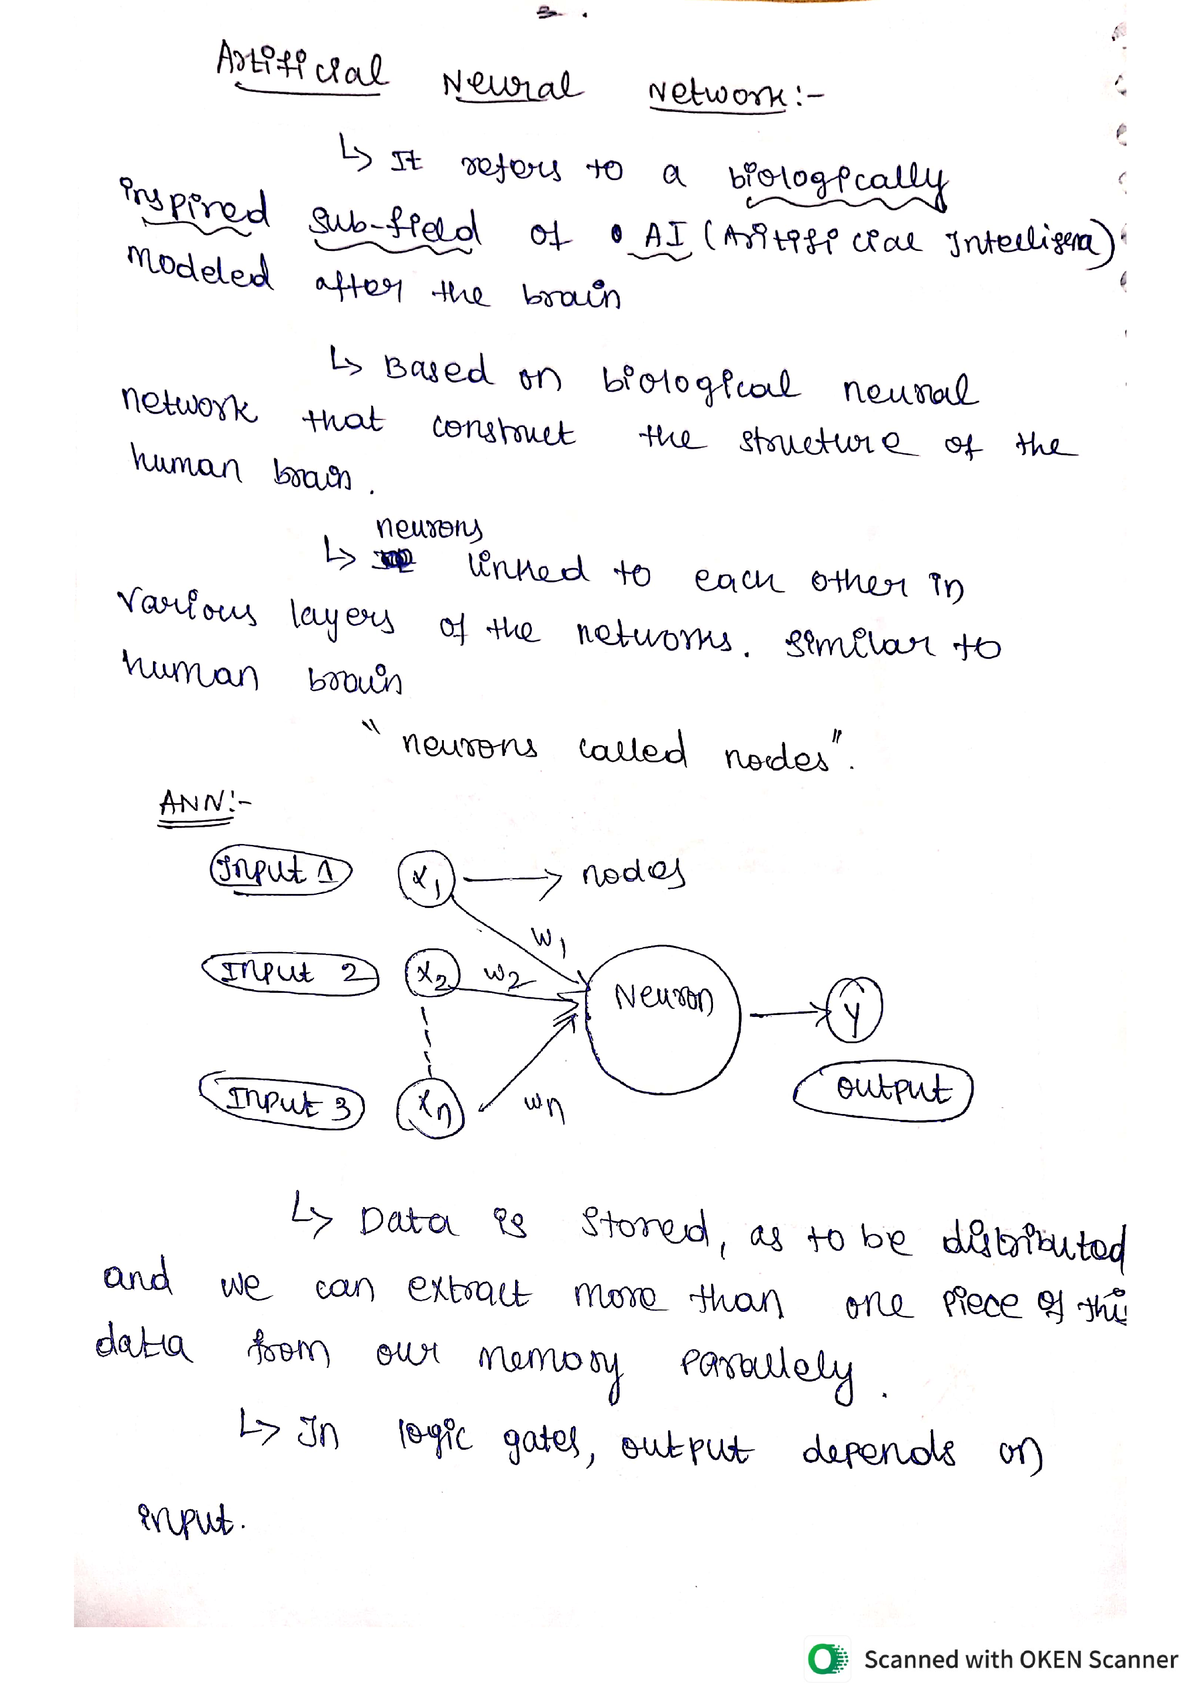 Artificial Neural Network:-
↳ It refers to a biologically
inspired sub-field of AI (Artificial Intelligena)
modeled after the brain
↳ Based on biological neural
network that construct the structure of the
human brain.
neurons
↳ linked to each other in
various layers of the networks. similar to
human brain
"neurons called nodes".
ANN:-
Input 1 x1 → nodes
w1
Input 2 x2 w2 Neuron → y
Input 3 xn wn output
↳ Data is stored, as to be distributed
and we can extract more than one piece of this
data from our memory parallely.
↳ In logic gates, output depends on
input.
Scanned with OKEN Scanner